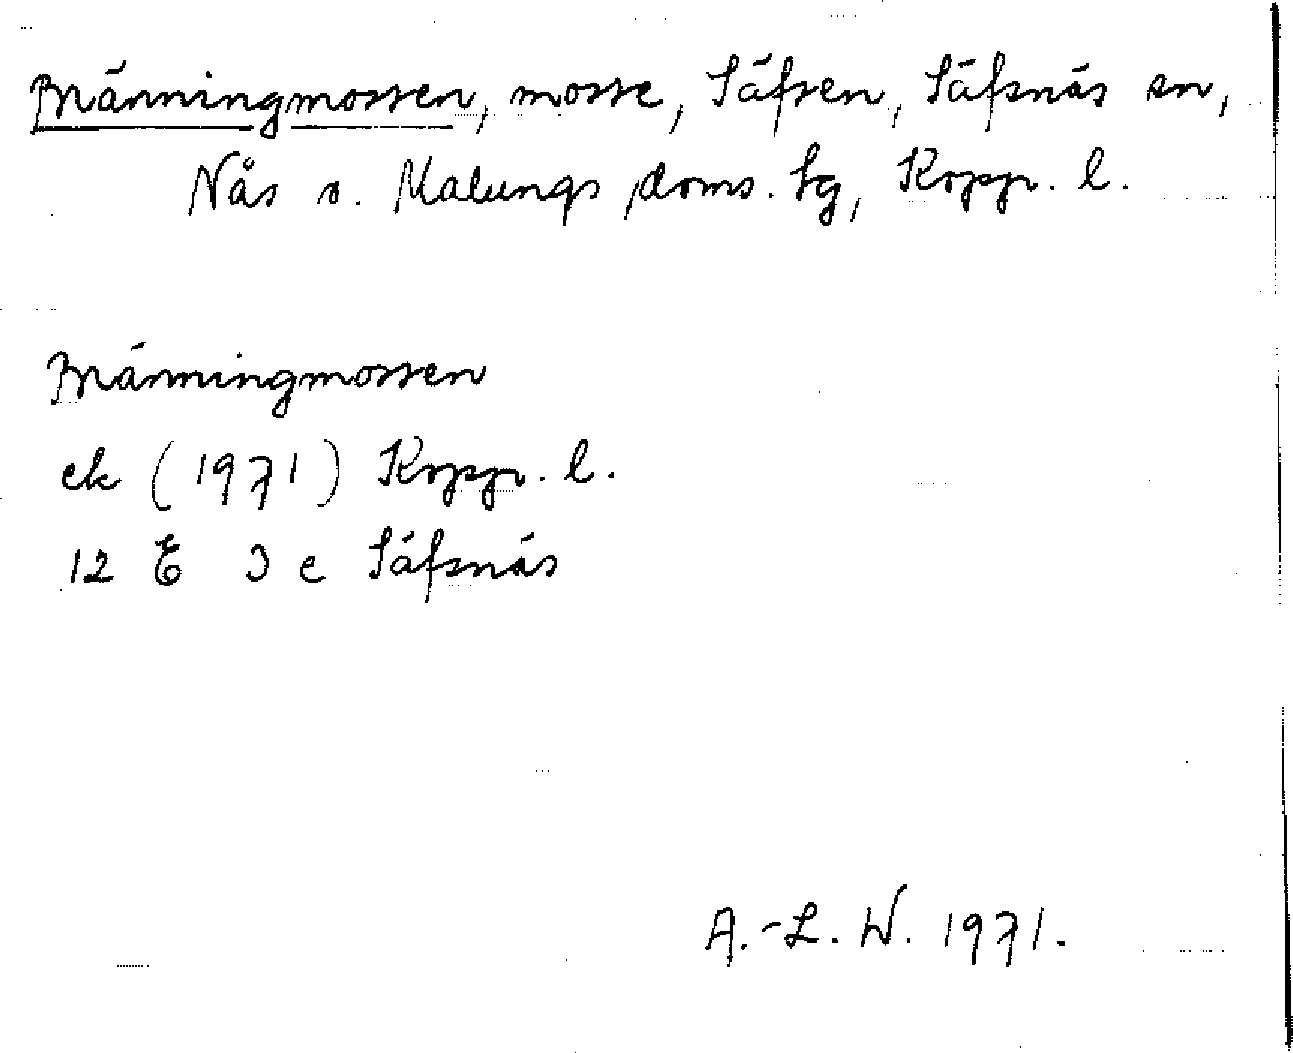 Bränningmossen, mosse, Säfsen, Säfsnäs sn,
Nås o. Malungs doms. tg, Koppr. l.
Bränningmossen
ek (1971) Koppr. l.
12 E 3 e Säfsnäs
A.-L. W. 1971.